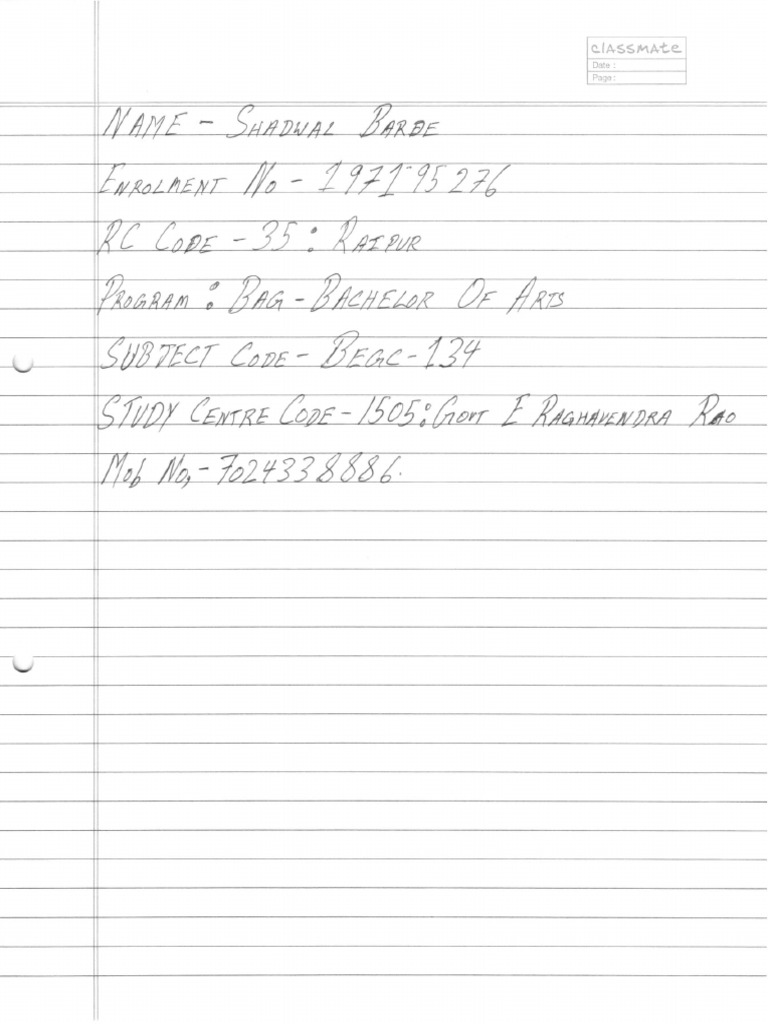 classmate
Date :
Page :
NAME - SHADWAL BARDE
ENROLMENT NO - 197195276
RC CODE - 35 : RAIPUR
PROGRAM : BAG - BACHELOR OF ARTS
SUBJECT CODE - BEGC - 134
STUDY CENTRE CODE - 1505 : GOVT E RAGHAVENDRA RAO
Mob No, - 7024338886.